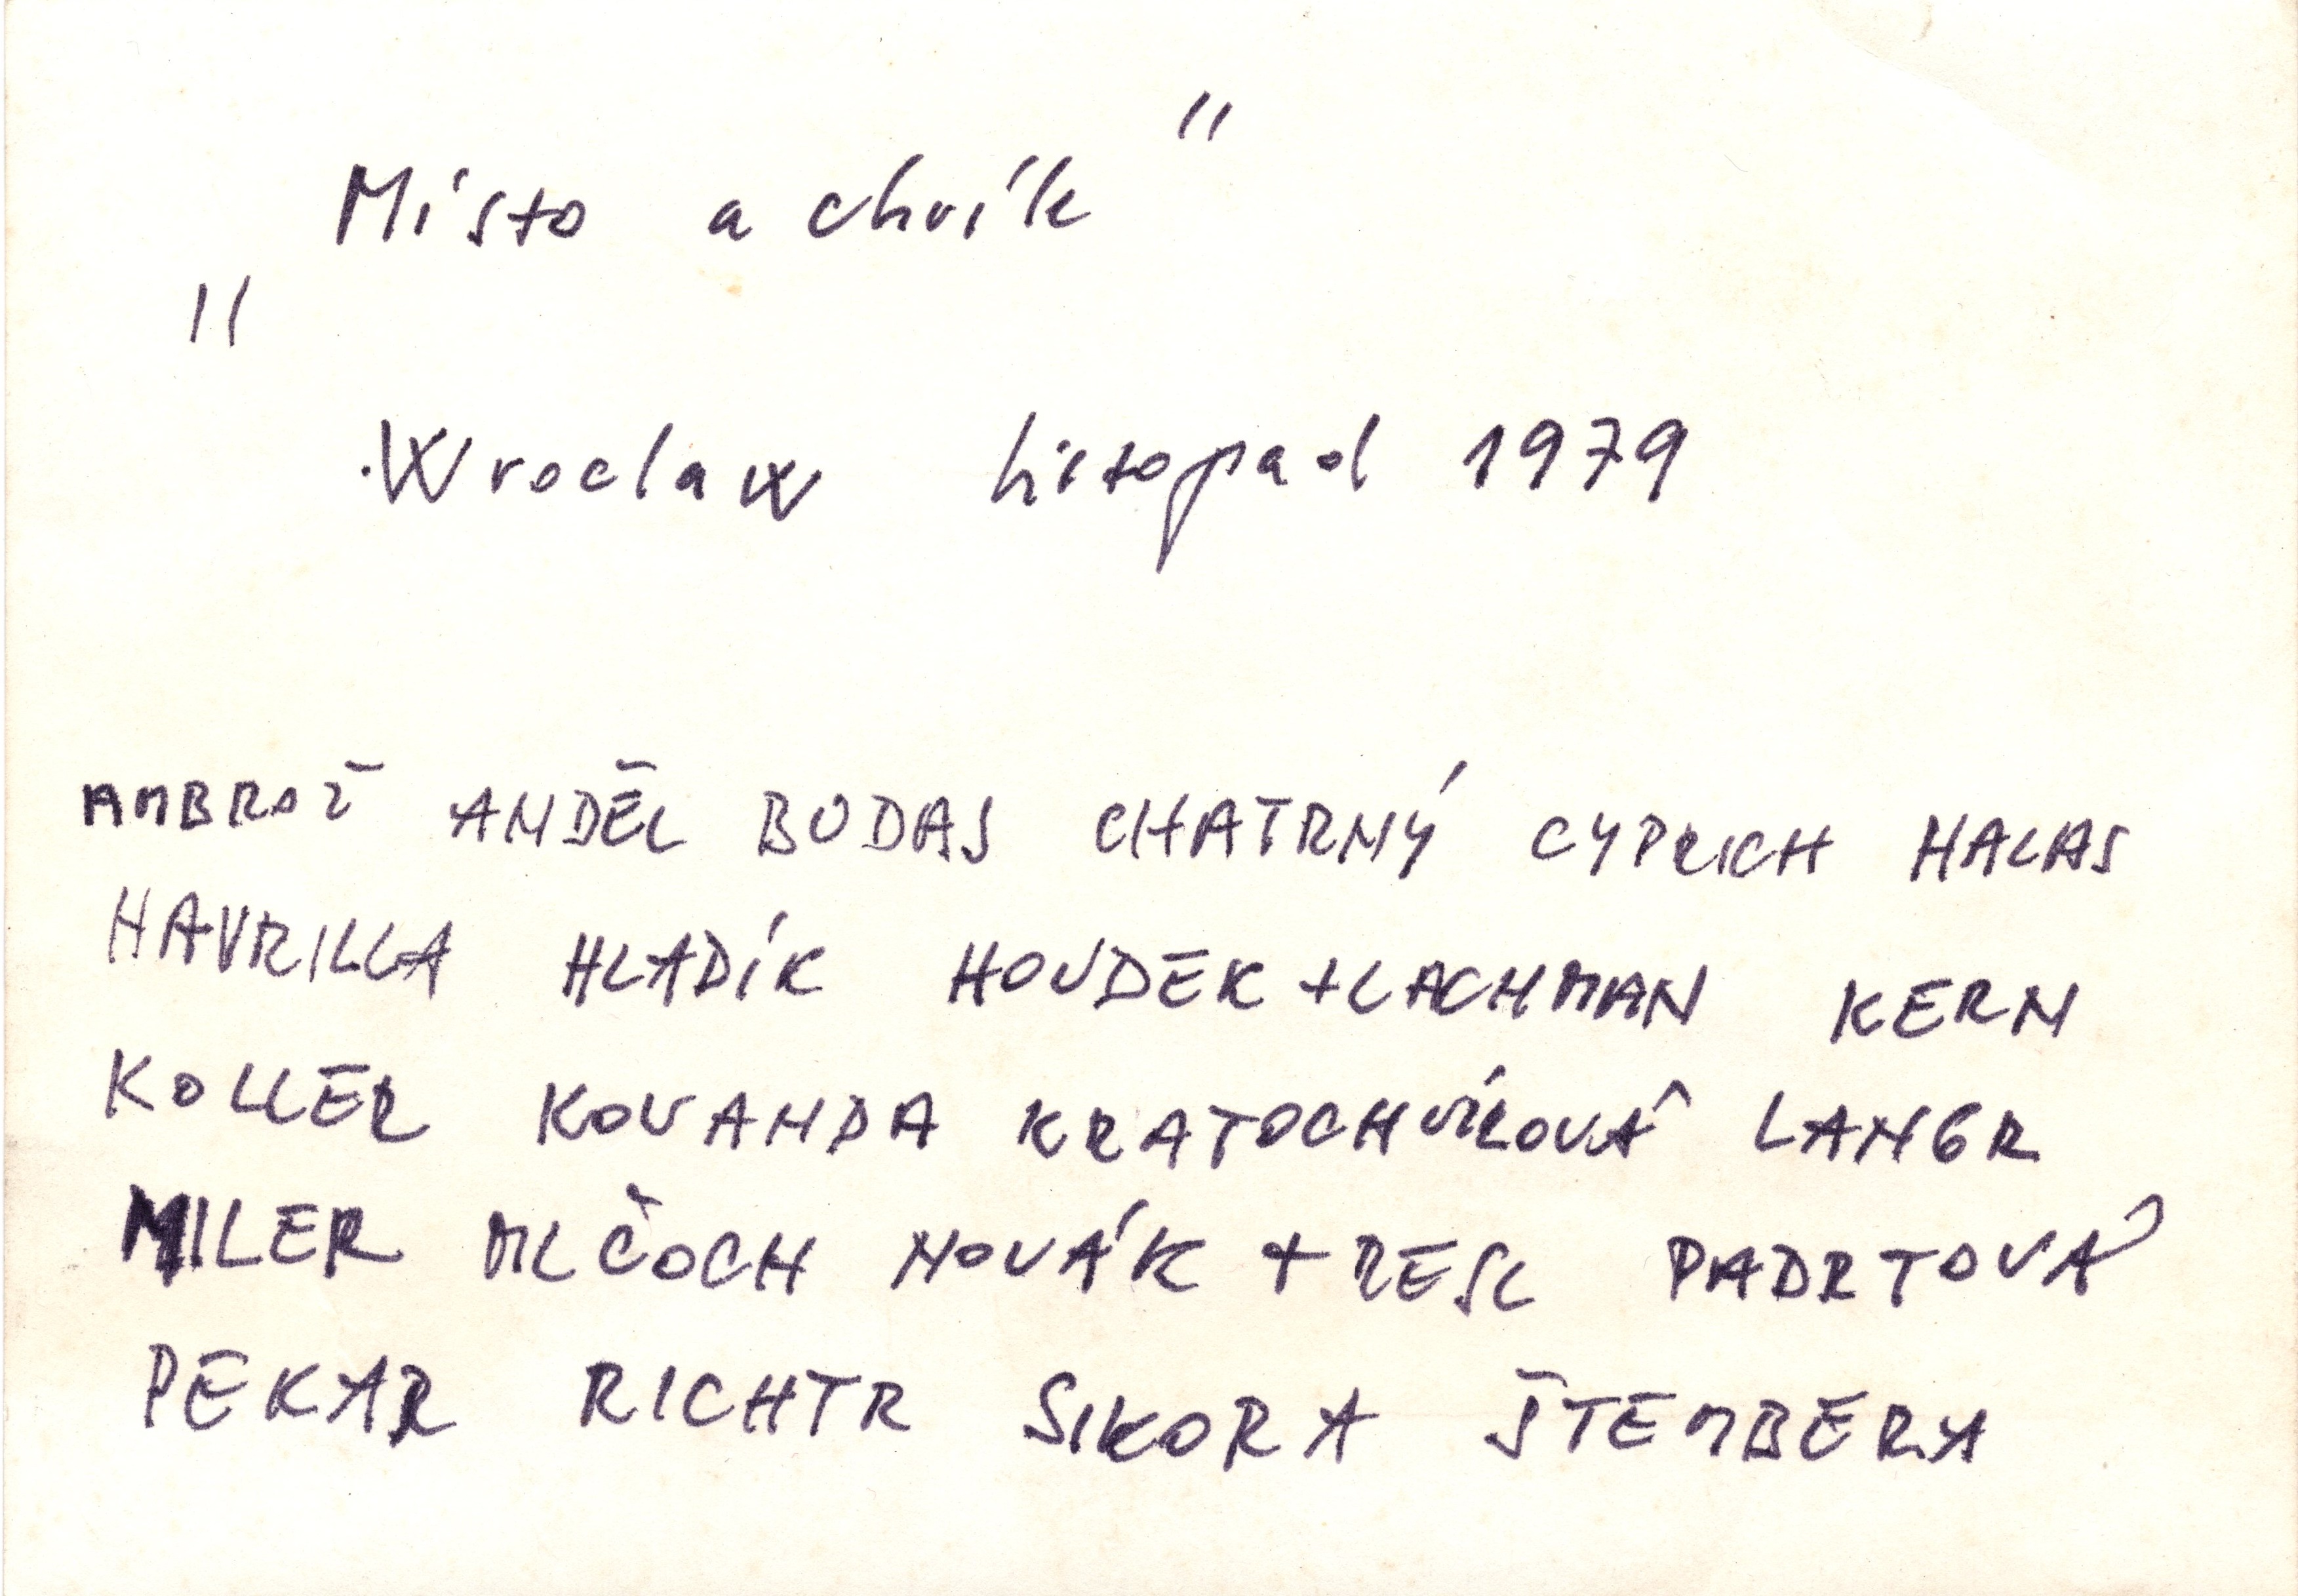 "Místo a chvíle"
Wroclaw listopad 1979
AMBROŽ ANDĚL BUDAJ CHATRNÝ CYPRICH HALAS
HAVRILLA HLADÍK HOUDEK + LACHMAN KERN
KOLLER KOVANDA KRATOCHVÍLOVÁ LANGR
MILER MLČOCH NOVÁK + RESL PADRTOVÁ
PEKAR RICHTR SIKORA ŠTEMBERA